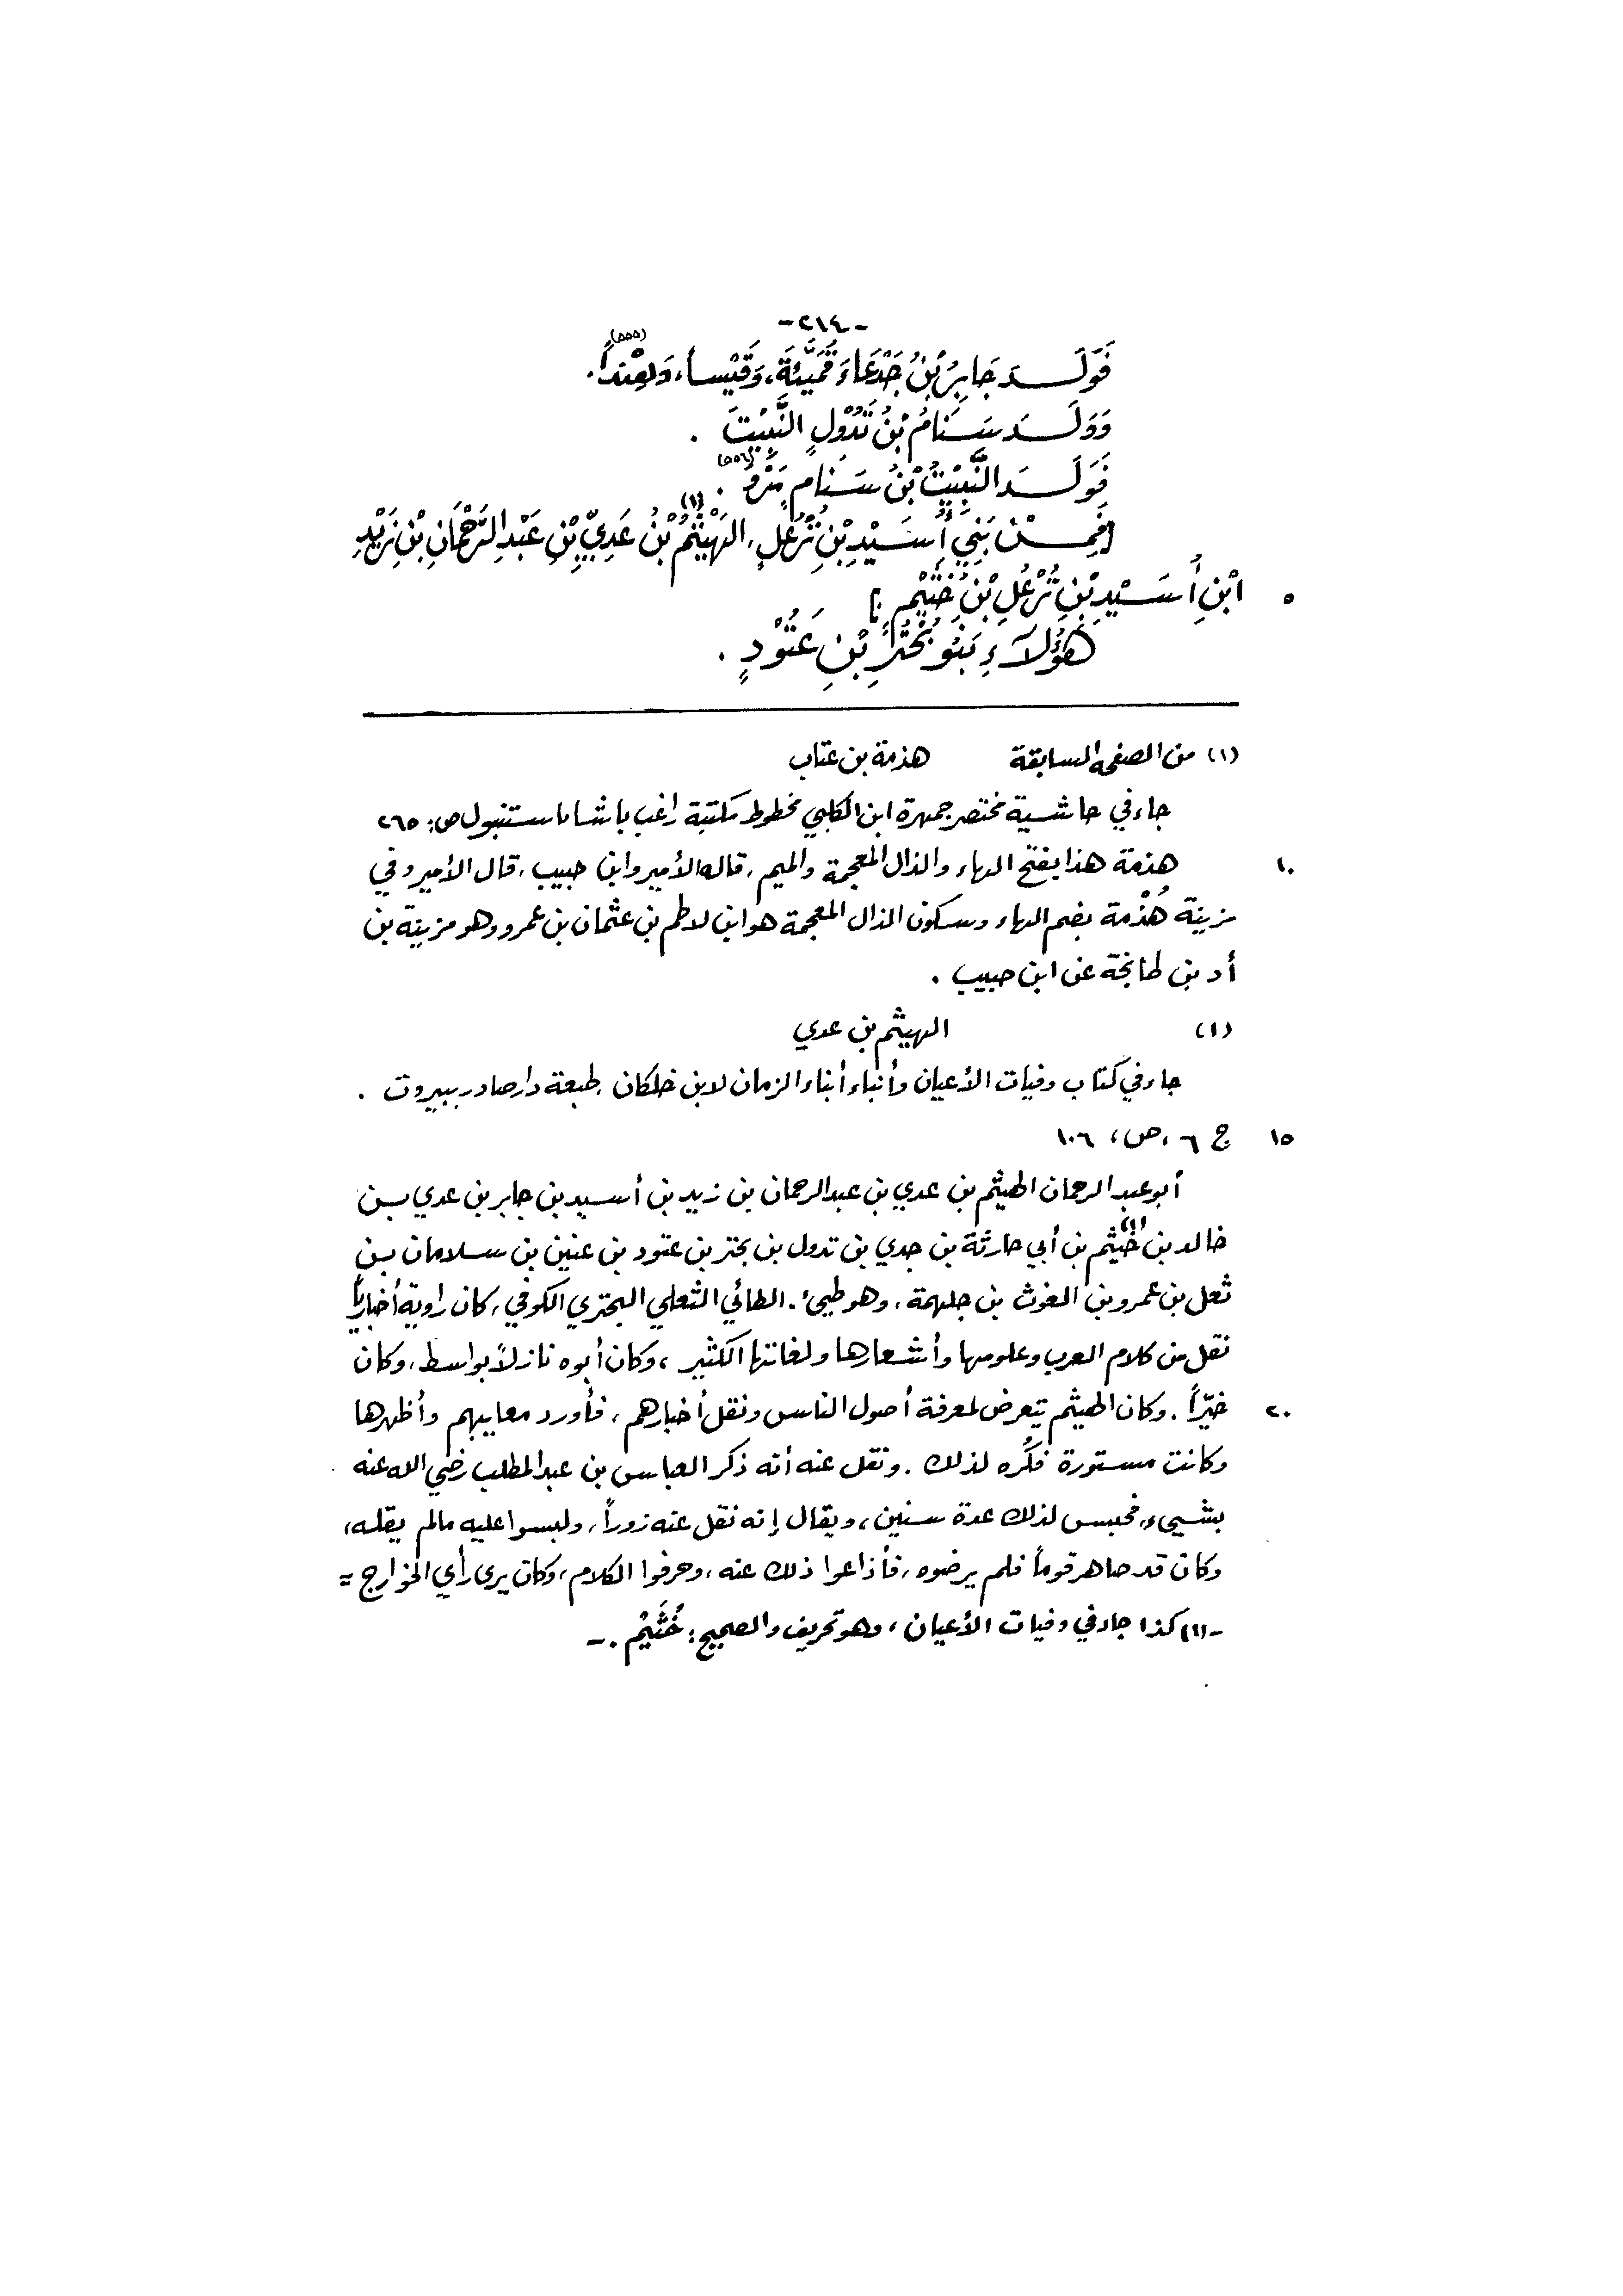 -٢١٤-
فَوَلَــدَ جَابِرُ بْنُ جَدْعَاءَ قُمَيَّئَةَ، وَقَيْساً، وَهِنْداً.(٥٥٥)
وَوَلَــدَ سَــنَامُ بْنُ تَدُوْلٍ النَّبِيْتَ .
فَوَلَــدَ النَّبِيْتُ بْنُ سَــنَامٍ (٥٥٦) .
[فَمِــنْ بَنِي أُسَــيْدِ بْنِ تُرْعُلٍ، الهَيْثَمُ (١) بْنُ عَدِيِّ بْنِ عَبْدِ الرَّحْمَانِ بْنِ زَيْدِ
٥ ابْنِ أُسَــيْدِ بْنِ تُرْعُلِ بْنِ خُثَيْمٍ .]
هَؤُلَآءِ بَنُو بُحْتُرِ بْنِ عَتُوْدٍ .
(١) من الصفحة السابقة هذمة بن عتاب
جاء في حاشية مختصر جمهرة ابن الكلبي مخطوط مكتبة راغب باشا باستنبول ص: ٢٦٥
١٠ هذمة هذا بفتح الهاء والذال المعجمة والميم، قاله الأمير وابن حبيب، قال الأمير وفي
مزينة هُذْمة بضم الهاء وسكون الذال المعجمة هو ابن لاطم بن عثمان بن عمرو وهو مزينة بن
أد بن طابخة عن ابن حبيب .
(١) الهيثم بن عدي
جاء في كتاب وفيات الأعيان وأنباء أبناء الزمان لابن خلكان طبعة دار صادر ببيروت .
١٥ ج ٦ ،ص، ١٠٦
أبو عبد الرحمان الهيثم بن عدي بن عبد الرحمان بن زيد بن أسيد بن جابر بن عدي بــن
خالد بن خُيثم(١) بن أبي حارثة بن جدي بن تدول بن بحتر بن عتود بن عنين بن سلامان بــن
ثعل بن عمرو بن الغوث بن جلهمة، وهو طيئ. الطائي الثعلي البحتري الكوفي، كان راوية أخبارياً
نقل من كلام العرب وعلومها وأشعارها ولغاتها الكثير، وكان أبوه نازلاً بواسط، وكان
٢٠ خيّراً. وكان الهيثم يتعرض لمعرفة أصول الناس ونقل أخبارهم، فأورد معايبهم وأظهرها
وكانت مستورة فكُره لذلك . ونقل عنه أنه ذكر العباس بن عبد المطلب رضي الله عنه
بشيء، فحبس لذلك عدة سنين، ويقال إنه نقل عنه زوراً، ولبسوا عليه مالم يقله،
وكان قد صاهر قوماً فلم يرضوه، فأذاعوا ذلك عنه، وحرفوا الكلام، وكان يرى رأي الخوارج =
-(١) كذا جاء في وفيات الأعيان، وهو تحريف والصحيح: خُثَيْم .-